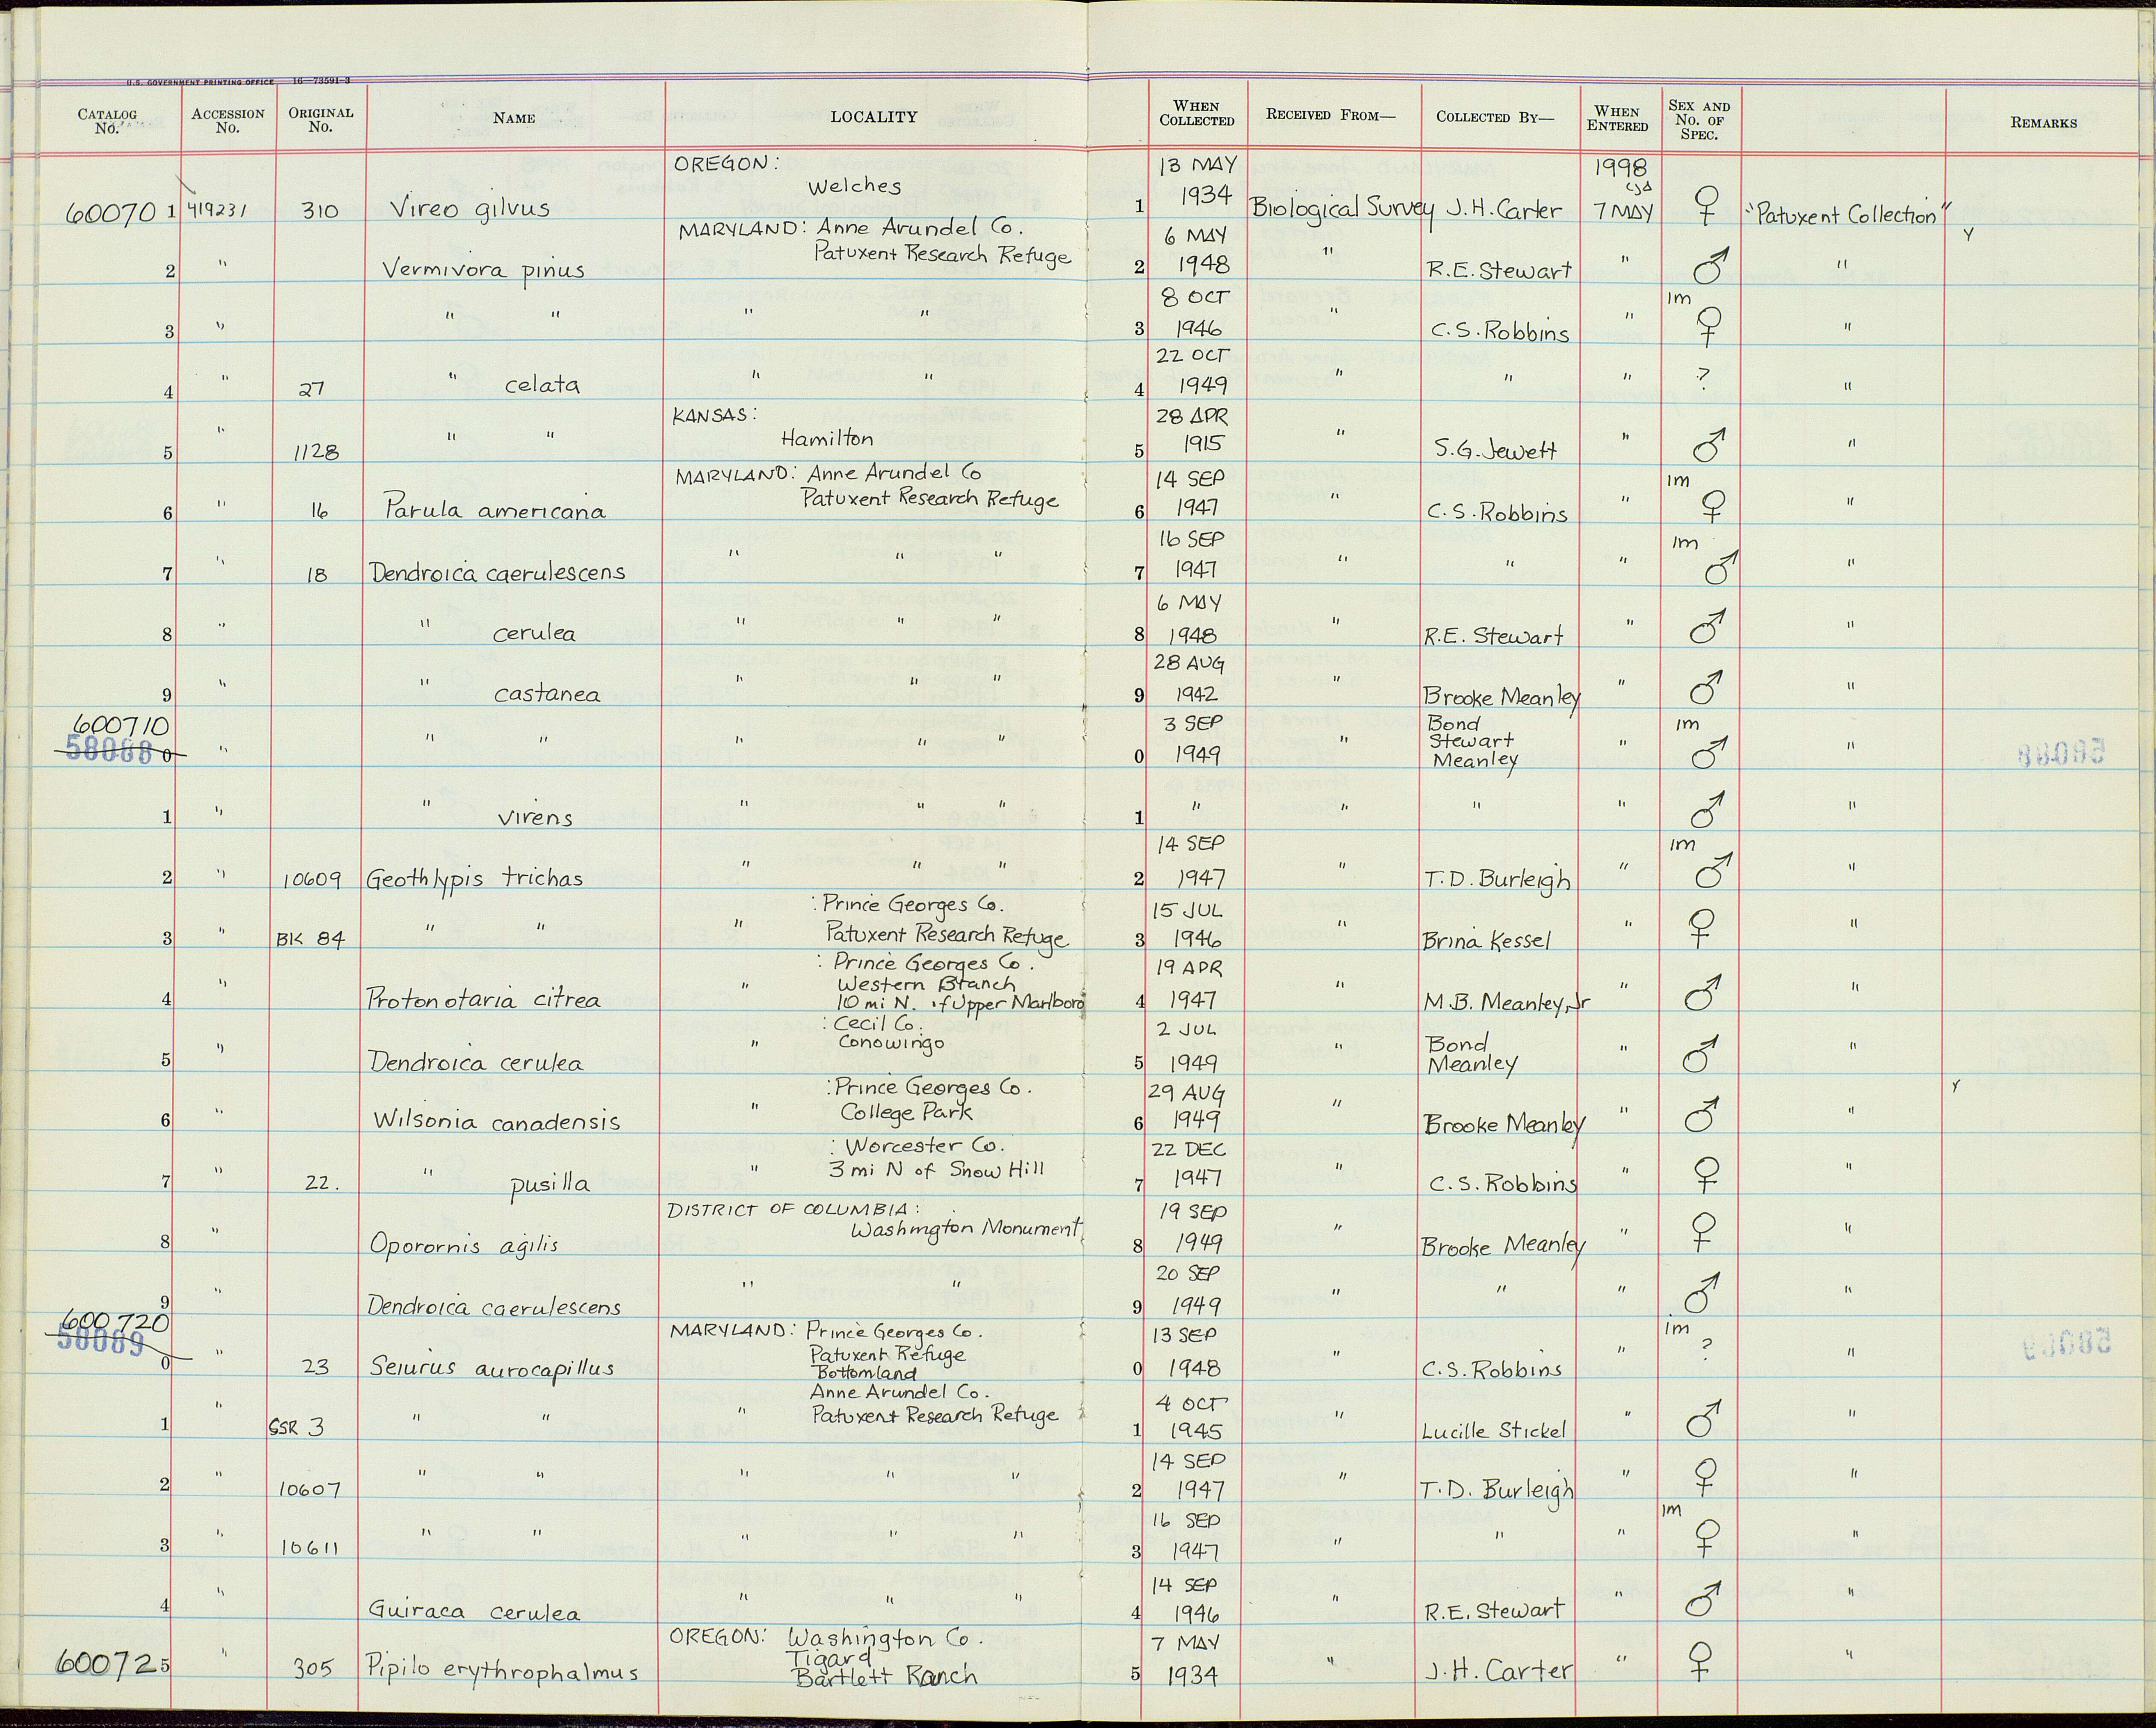 U.S. GOVERNMENT PRINTING OFFICE 16—73591-3
CATALOG No. ACCESSION No. ORIGINAL No. NAME LOCALITY WHEN COLLECTED RECEIVED FROM— COLLECTED BY— WHEN ENTERED SEX AND No. OF SPEC. REMARKS
OREGON: 13 MAY 1998
Welches
60070 1 419231 310 Vireo gilvus 1 1934 Biological Survey J.H. Carter 7 MAY ♀ "Patuxent Collection"
MARYLAND: Anne Arundel Co. 6 MAY Y
Patuxent Research Refuge
2 " Vermivora pinus 2 1948 " R.E. Stewart " ♂ "
8 OCT Im
3 " " " " " 3 1946 " C.S. Robbins " ♀ "
22 OCT
4 " 27 " celata " " 4 1949 " " " ? "
KANSAS: 28 APR
Hamilton
5 " 1128 " " 5 1915 " S.G. Jewett " ♂ "
MARYLAND: Anne Arundel Co 14 SEP Im
Patuxent Research Refuge
6 " 16 Parula americana 6 1947 " C.S. Robbins " ♀ "
16 SEP Im
7 " 18 Dendroica caerulescens " " " 7 1947 " " " ♂ "
6 MAY
8 " " cerulea " " " 8 1948 " R.E. Stewart " ♂ "
28 AUG
9 " " castanea " " " 9 1942 " Brooke Meanley " ♂ "
600710 3 SEP Bond Im
Stewart
58088 0 " " " " " " 0 1949 " Meanley " ♂ "
1 " " virens " " " 1 " " " " ♂ "
14 SEP Im
2 " 10609 Geothlypis trichas " " " 2 1947 " T.D. Burleigh " ♂ "
: Prince Georges Co. 15 JUL
3 " BK 84 " " " Patuxent Research Refuge 3 1946 " Brina Kessel " ♀ "
: Prince Georges Co. 19 APR
" Western Branch
4 " Protonotaria citrea 10 mi N. of Upper Marlboro 4 1947 " M.B. Meanley, Jr " ♂ "
: Cecil Co. 2 JUL
" Conowingo Bond
5 " Dendroica cerulea 5 1949 " Meanley " ♂ "
: Prince Georges Co. 29 AUG Y
" College Park
6 " Wilsonia canadensis 6 1949 " Brooke Meanley " ♂ "
: Worcester Co. 22 DEC
" 3 mi N of Snow Hill
7 " 22. " pusilla 7 1947 " C.S. Robbins " ♀ "
DISTRICT OF COLUMBIA: 19 SEP
Washington Monument
8 " Oporornis agilis 8 1949 " Brooke Meanley " ♀ "
20 SEP
9 " Dendroica caerulescens " " 9 1949 " " " ♂ "
600720 MARYLAND: Prince Georges Co. 13 SEP Im
58089 Patuxent Refuge
0 " 23 Seiurus aurocapillus Bottomland 0 1948 " C.S. Robbins " ? "
Anne Arundel Co. 4 OCT
" Patuxent Research Refuge
1 " SSR 3 " " 1 1945 " Lucille Stickel " ♂ "
14 SEP
2 " 10607 " " " " " 2 1947 " T.D. Burleigh " ♀ "
16 SEP Im
3 " 10611 " " " " " 3 1947 " " " ♀ "
14 SEP
4 " Guiraca cerulea " " " 4 1946 " R.E. Stewart " ♂ "
OREGON: Washington Co. 7 MAY
Tigard
60072 5 " 305 Pipilo erythrophalmus Bartlett Ranch 5 1934 " J.H. Carter " ♀ "